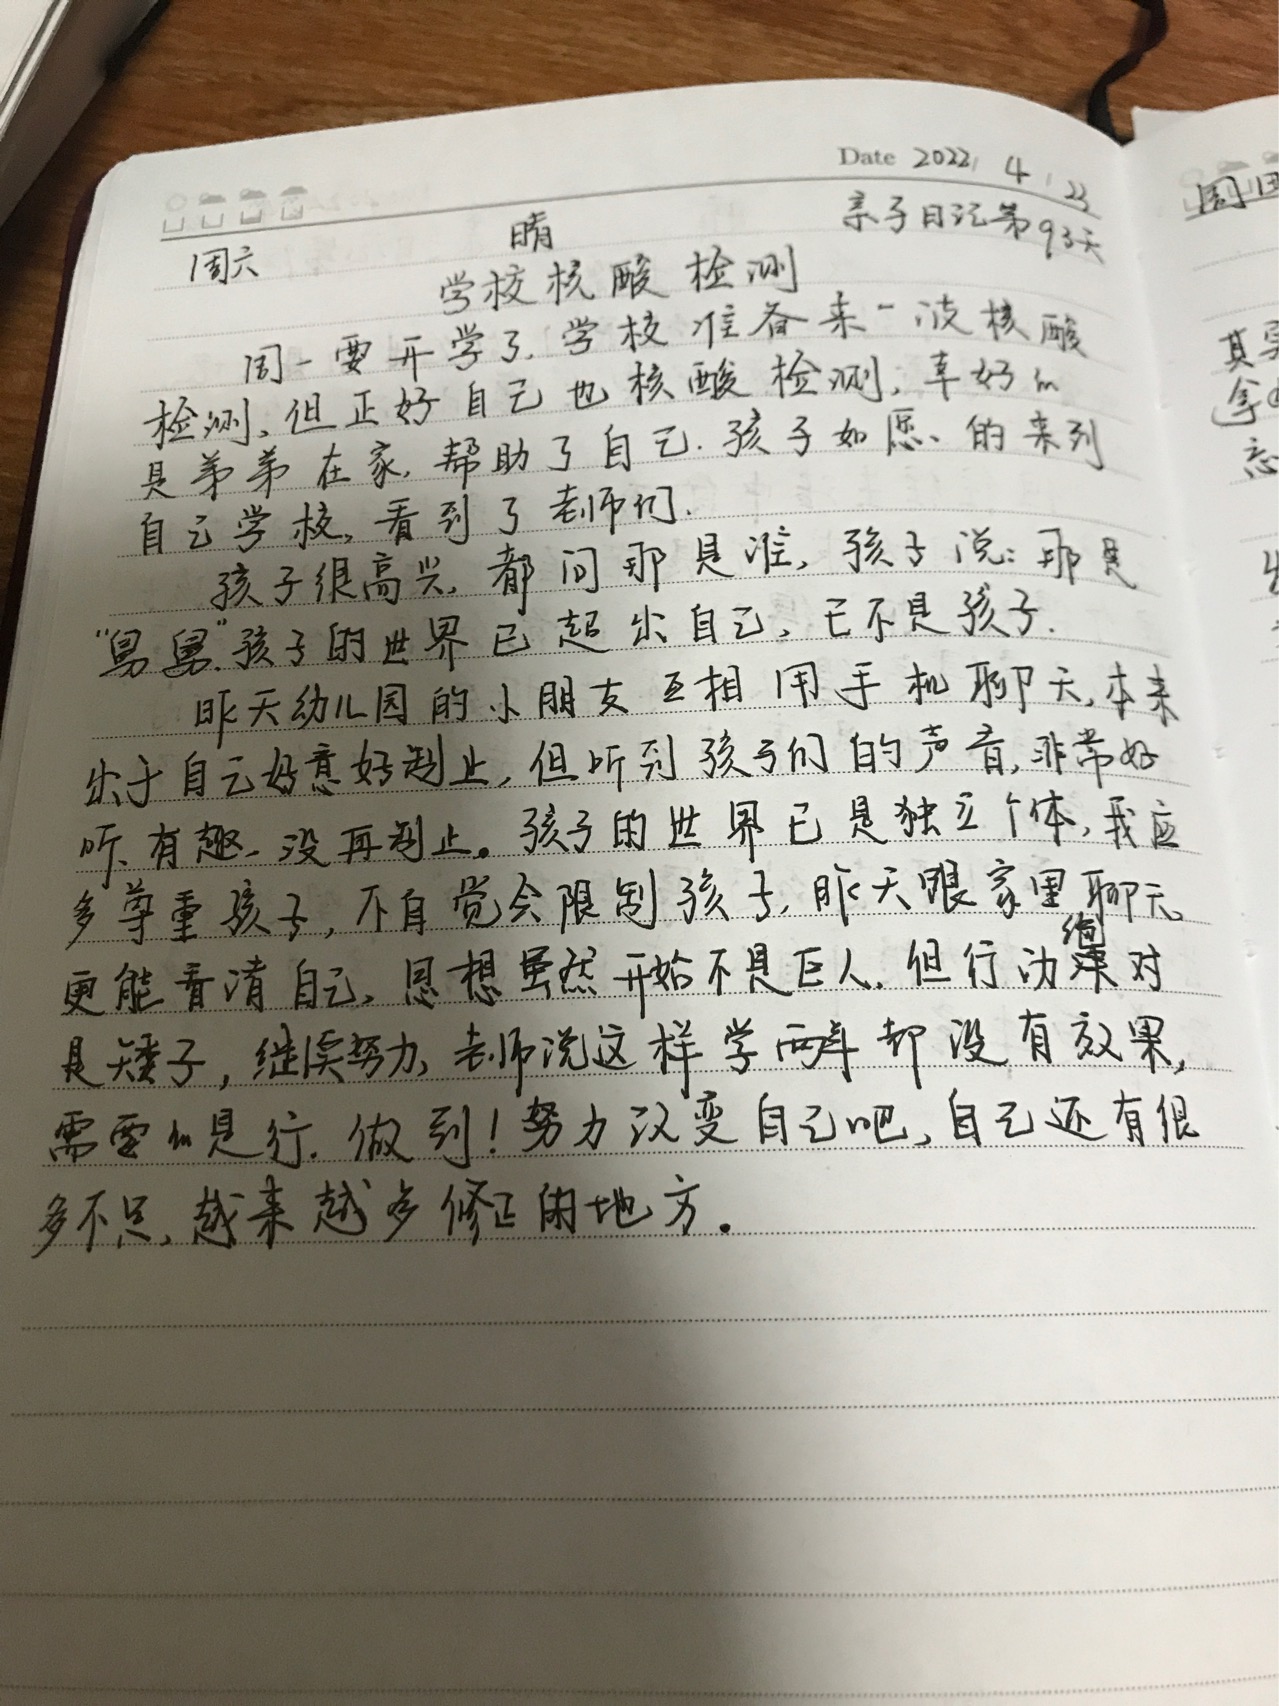 Date 2022 4 23
周六 晴 亲子日记第93天
学校核酸检测
周一要开学了.学校准备来一波核酸
检测,但正好自己也核酸检测,幸好的
是弟弟在家,帮助了自己.孩子如愿、的来到
自己学校,看到了老师们.
孩子很高兴,都问那是谁,孩子说:那是
"舅舅".孩子的世界已超出自己,已不是孩子.
昨天幼儿园的小朋友互相用手机聊天,本来
出于自己好意好制止,但听到孩子们的声音,非常好
听、有趣、没再制止。孩子的世界已是独立个体,我应
多尊重孩子,不自觉会限制孩子,昨天跟家里聊天,
更能看清自己,思想虽然开始不是巨人.但行动绝对
是矮子,继续努力,老师说这样学两年都没有效果,
需要的是行.做到!努力改变自己吧,自己还有很
多不足,越来越多修正的地方。
周日